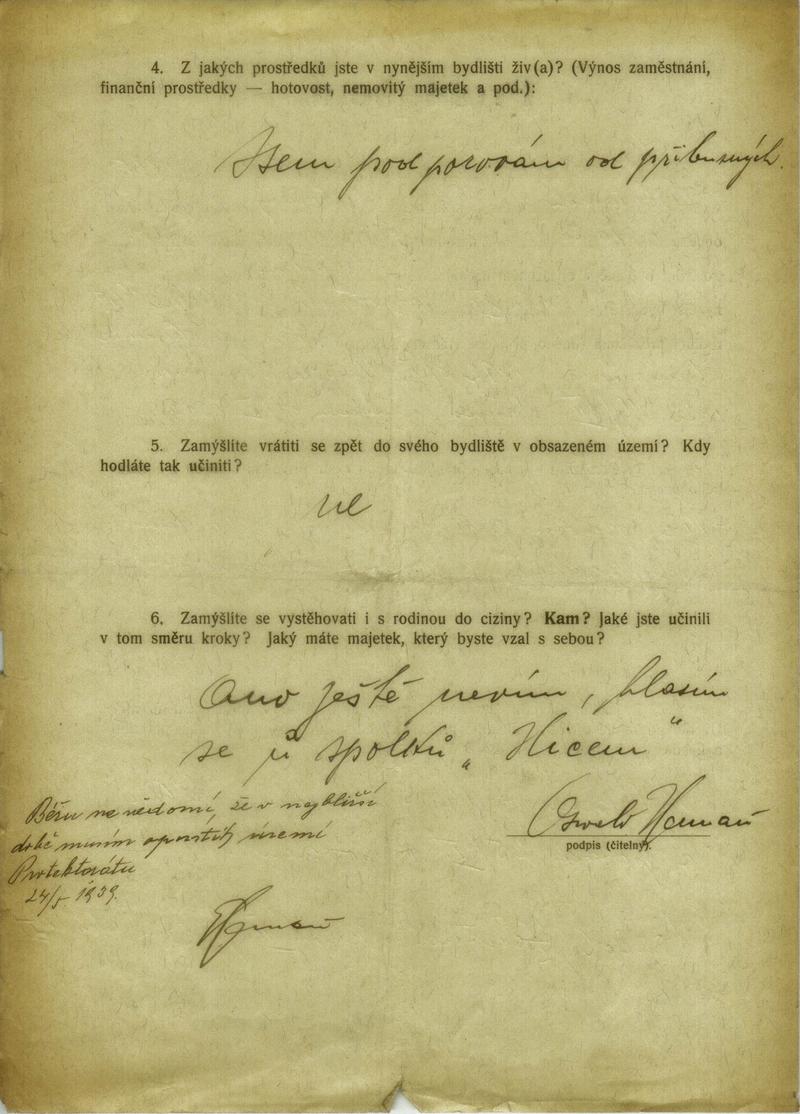 4. Z jakých prostředků jste v nynějším bydlišti živ(a)? (Výnos zaměstnání,
finanční prostředky — hotovost, nemovitý majetek a pod.):
Jsem podporován od příbuzných.
5. Zamýšlíte vrátiti se zpět do svého bydliště v obsazeném území? Kdy
hodláte tak učiniti?
ne
6. Zamýšlíte se vystěhovati i s rodinou do ciziny? Kam? Jaké jste učinili
v tom směru kroky? Jaký máte majetek, který byste vzal s sebou?
Ano ještě nevím, hlasím
se ů spolků „Hicem“
Běžu na vědomí, že v nejbližší
době musím opustit území
Protektorátu
24/5 1939.
podpis (čitelný):